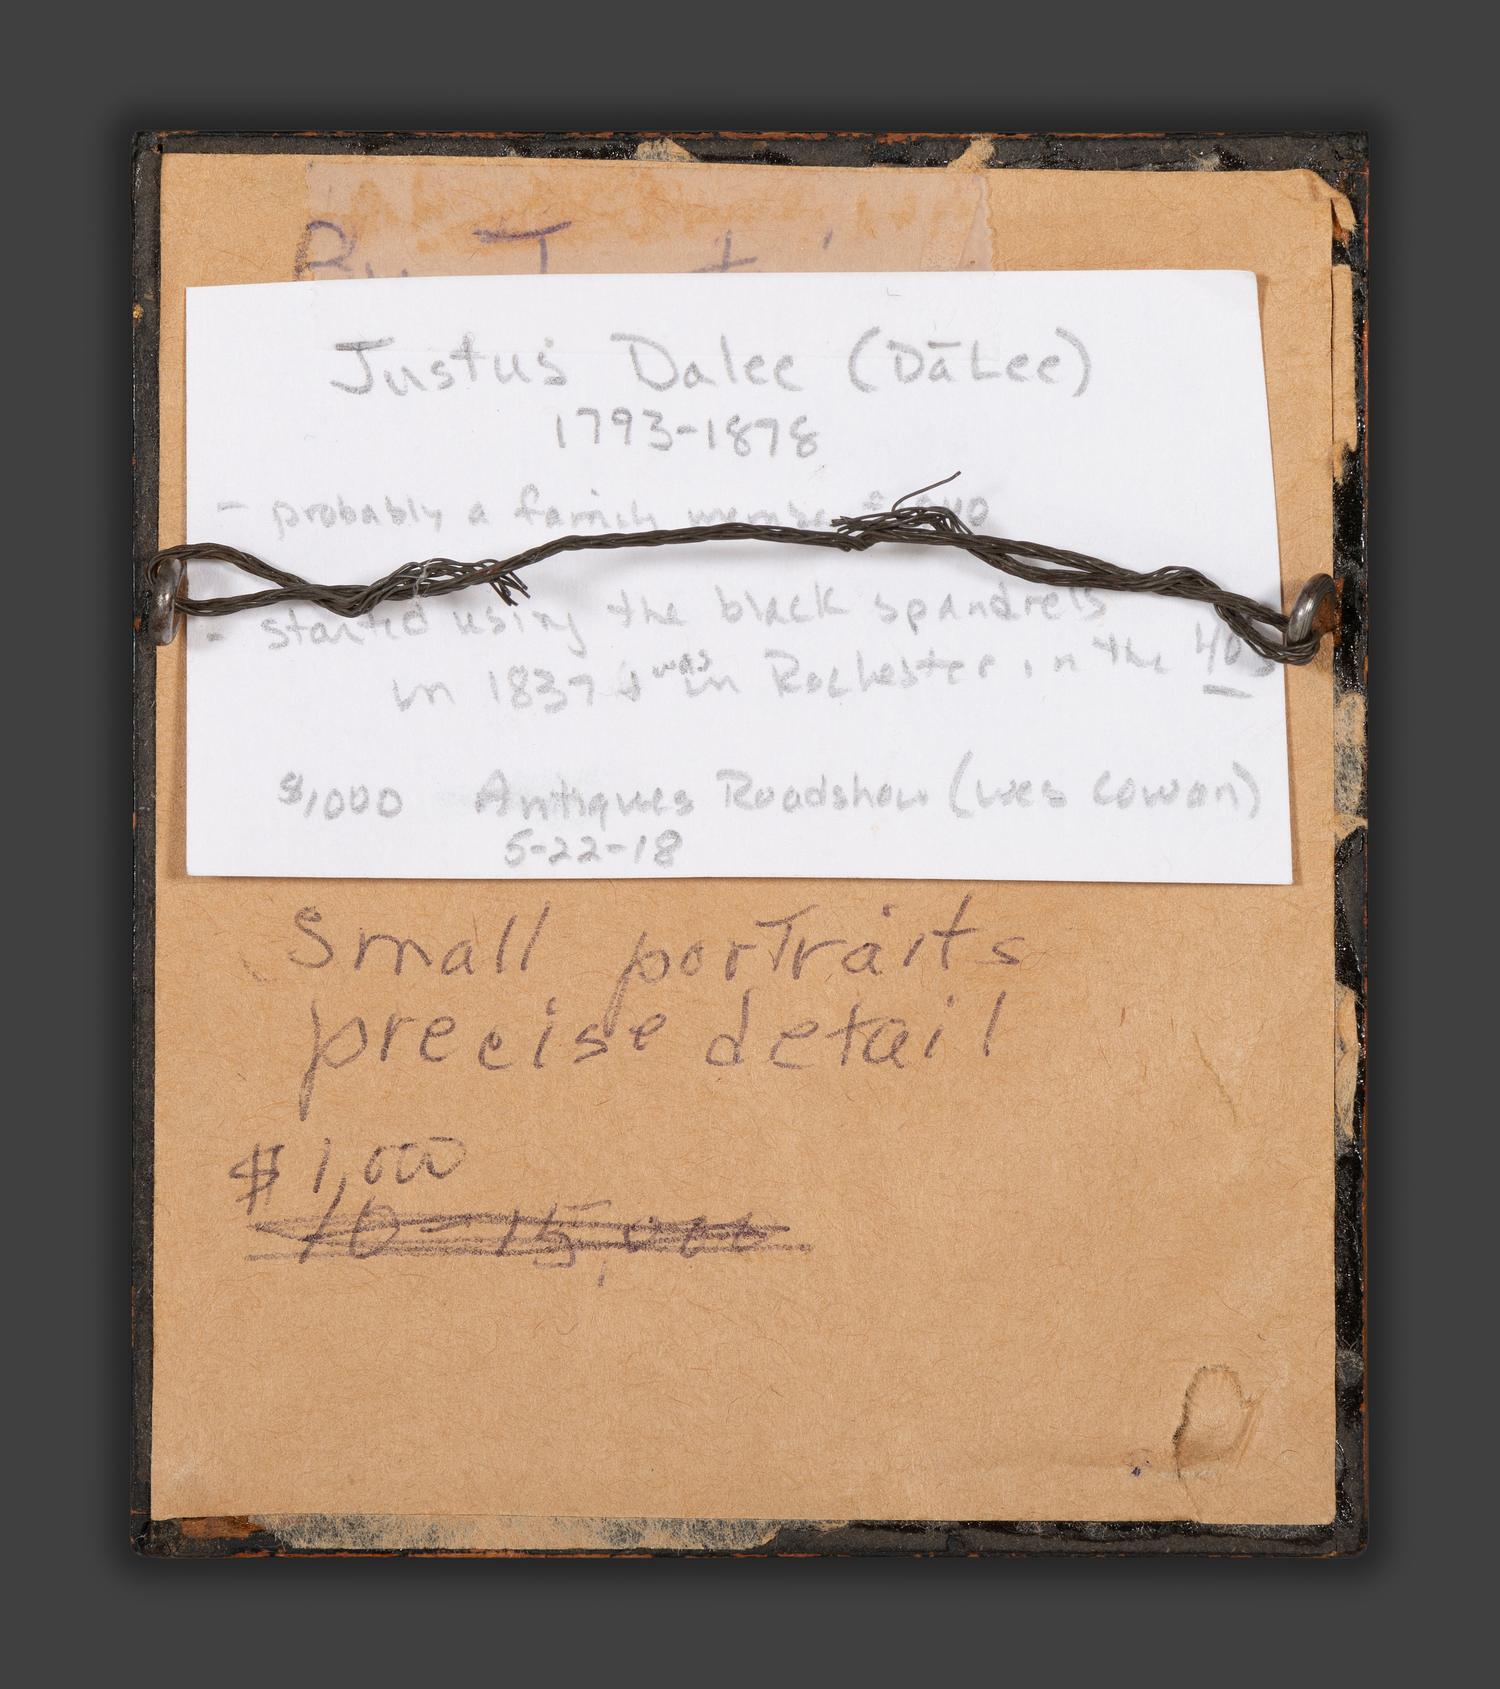 By
Justus Dalee (DāLee)
1793-1878
- probably a family member
- started using the black spandrels
in 1837 & was in Rochester in the 40s
$1,000 Antiques Roadshow (Wes Cowan)
5-22-18
Small portraits
precise detail
$1,000
10-15,000